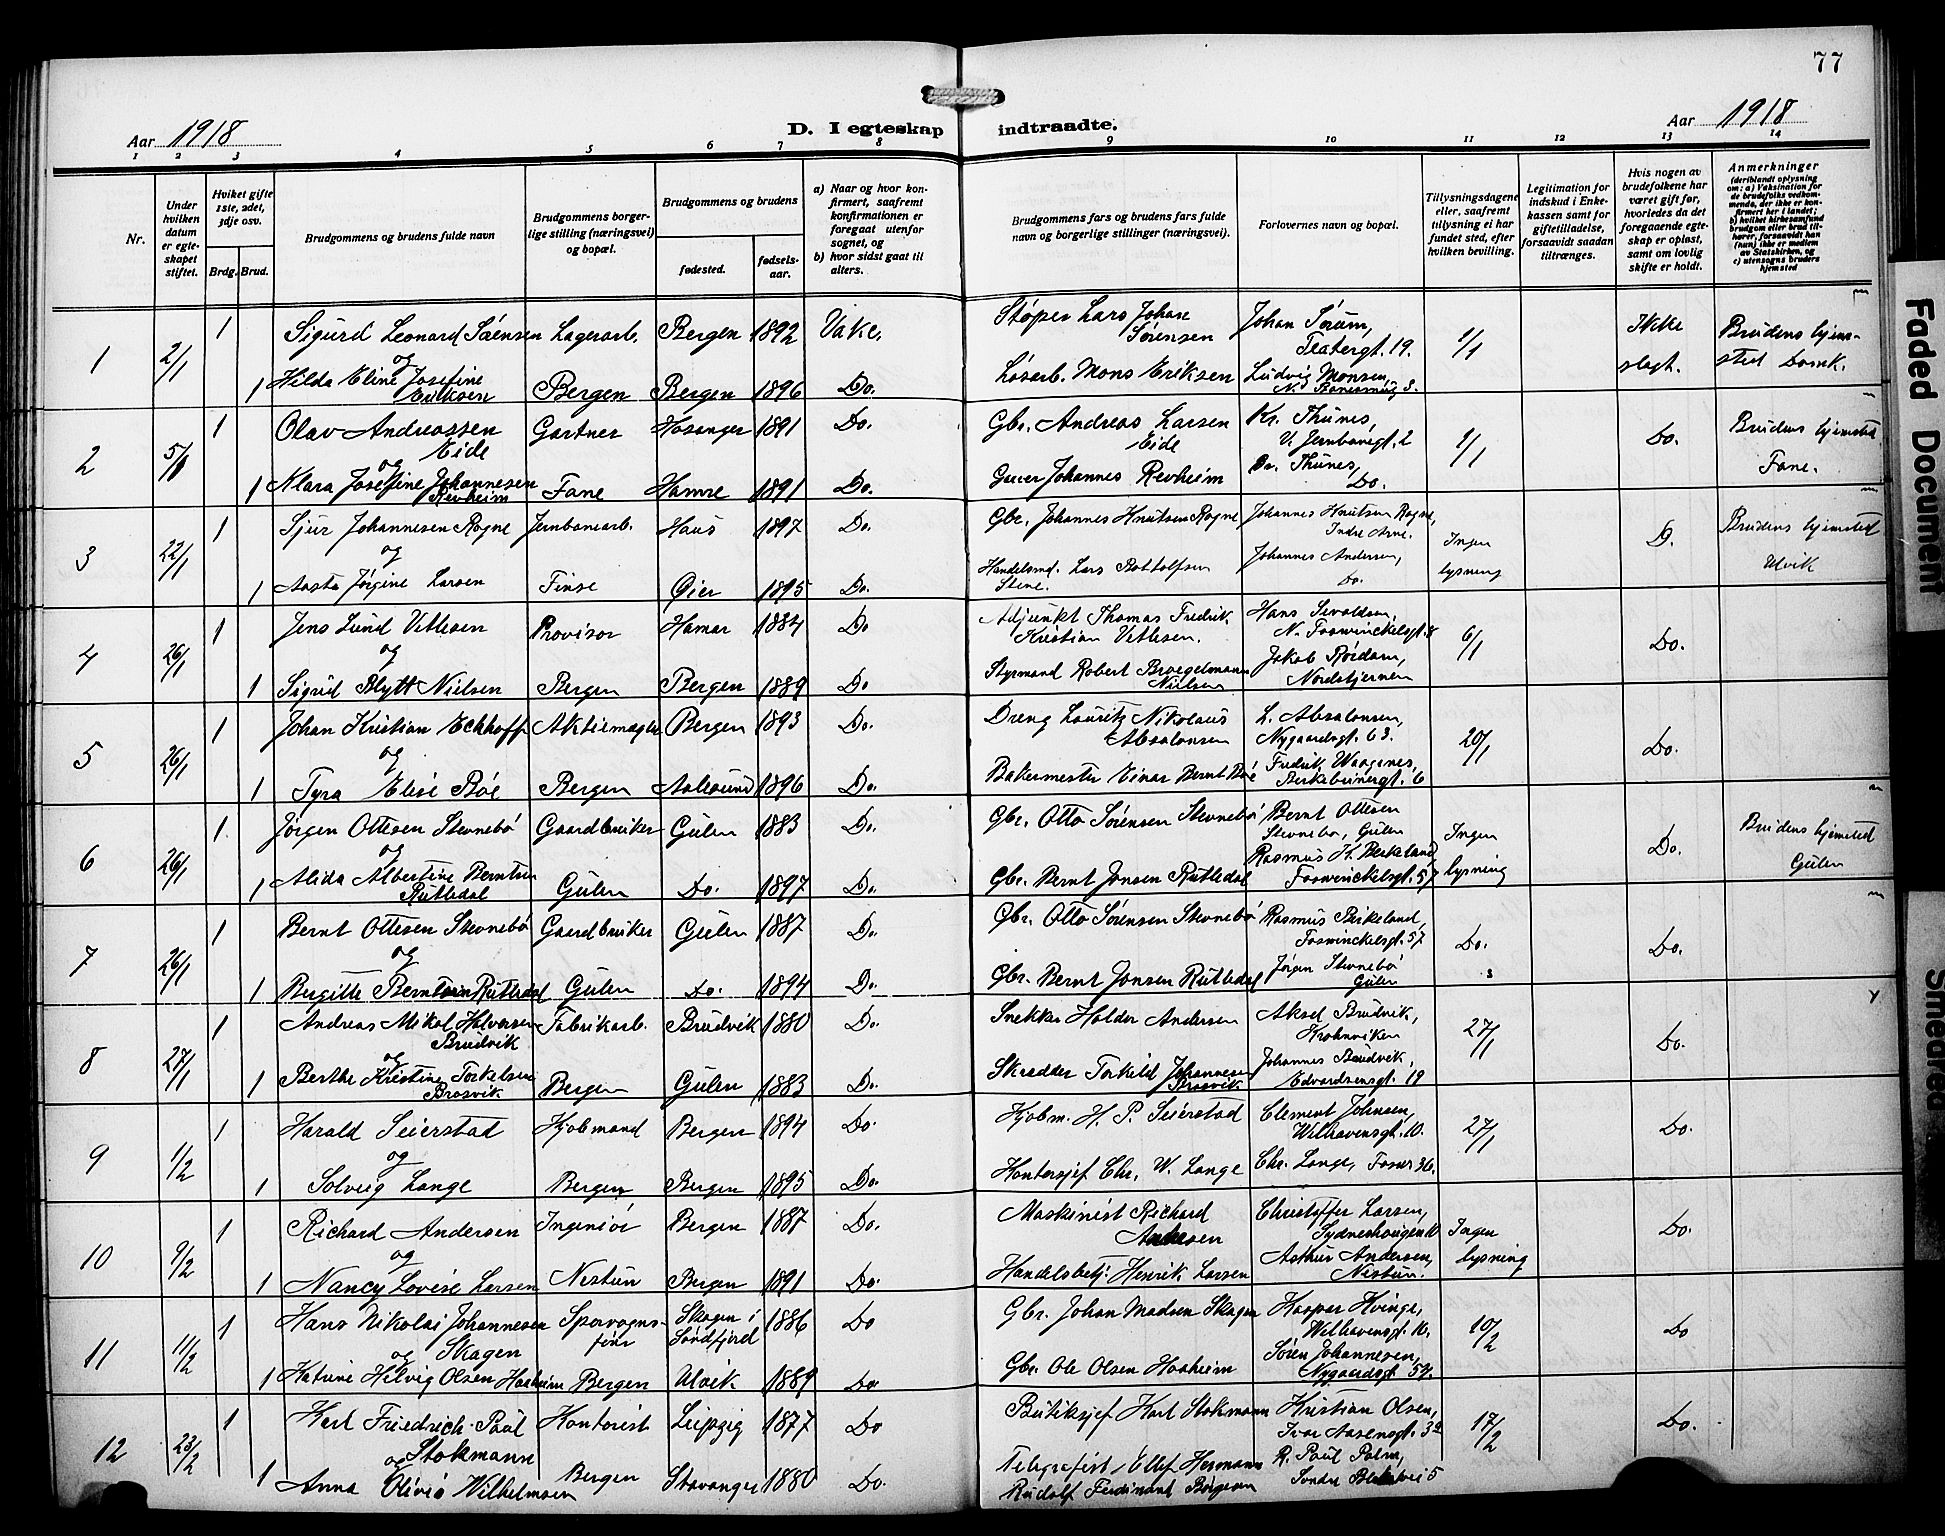 77
Aar 1918
D. I egteskap indtraadte.
Aar 1918
1 2 3 4 5 6 7 8 9 10 11 12 13 14
Nr.
Under hvilken datum er egteskapet stiftet.
Hvilket gifte 1ste, 2det, 3dje osv.
Brdg. Brud.
Brudgommens og brudens fulde navn
Brudgommens borgerlige stilling (næringsvei) og bopæl.
Brudgommens og brudens
fødested.
fødselsaar.
a) Naar og hvor konfirmert, saafremt konfirmationen er foregaat utenfor sognet, og
b) hvor sidst gaat til alters.
Brudgommens fars og brudens fars fulde navn og borgerlige stillinger (næringsvei).
Forlovernes navn og bopæl.
Tillysningsdagene eller, saafremt tillysning ei har fundet sted, efter hvilken bevilling.
Legitimation for indskud i Enkekassen samt for giftetilladelse, forsaavidt saadan tiltrænges.
Hvis nogen av brudefolkene har været gift før, hvorledes da det foregaaende egteskap er opløst, samt om lovlig skifte er holdt.
Anmerkninger (deriblandt oplysning om: a) Vaksination for de brudefolks vedkommende, der ikke er konfirmert her i landet; b) hvilket kirkesamfund brudgom eller brud tilhører, forsaavidt han (hun) ikke er medlem av Statskirken, og c) utensogns bruders hjemsted
1 2/1 1 Sigurd Leonard Sørensen Lagerarb. Bergen 1892 Støper Lars Johan Sørensen Johan Sørum, Teatergt. 19. 1/1 Ikke slegt. Brudens hjemsted Domk.
og
1 Hilda Eline Josefine Eriksen Bergen Bergen 1896 Do. Løsarb. Mons Eriksen Ludvig Monsen,
2 5/1 1 Olav Andreassen Eide Gartner Hosanger 1891 Do. Gbr. Andreas Larsen Eide Kr. Thunes, V. Jernbanegt. 2 1/1 Do. Brudens hjemsted Fane.
og
1 Klara Josefine Johannesen Revheim Fane Hamre 1891 Do. Johannes Revheim Thunes, Do.
3 22/1 1 Sjur Johannesen Rogne Jernbanearb. Haus 1897 Do. Gbr. Johannes Knutsen Rogne Johannes Knutsen Rogne, Indre Arne. Ingen lysning D. Brudens hjemsted Ulvik
og
1 Aasta Jørgine Larsen Finse Øier 1895 Do. Handelsmd. Lars Bottolfsen Stene. Johannes Andersen, Do.
4 26/1 1 Jens Lund Vetlesen Provisor Hamar 1884 Do Adjunkt Thomas Fredrik Kristian Vetlesen. Hans Sevaldsen, N. Fosswinckelsgt. 8 6/1 Do.
og
1 Sigrid Blytt Nielsen Bergen Bergen 1889 Do Styrmand Robert Broegelmann Nielsen Jakob Rördam, Nordstjernen
5 26/1 1 Johan Kristian Eckhoff Aktiemægler Bergen 1893 Do. Dreng Lauritz Nikolaus Absalonsen L. Absalonsen, Nygaardsgt. 63. 20/1 Do.
og
1 Tyra Elise Böe Bergen Aalesund 1896 Do. Bakermester Einar Bernt Böe Fredrik Waagenes, Birkebeinergt. 6
6 26/1 1. Jørgen Ottesen Stevnebö Gaardbruker Gulen 1883 Do. Gbr. Otto Sörensen Stevnebö Bernt Ottesen Stevnebö, Gulen Ingen lysning Do. Brudens hjemsted Gulen
og
1 Alida Albertine Berntsen Rutledal Gulen Do. 1897 Do. Gbr. Bernt Jonsen Rutledal Rasmus K. Berkeland, Fosswinckelsgt. 57
7 26/1 1 Bernt Ottesen Stevnebö Gaardbruker Gulen 1887 Do. Gbr. Otto Sörensen Stevnebö Rasmus Birkeland, Fosswinckelsgt. 57 Do. Do.
og
1 Bergitte Berntsen Rutledal Gulen Do. 1894 Do. Gbr. Bernt Jonsen Rutledal Jørgen Stevnebö Gulen
8 27/1 1 Andreas Mikal Halvorsen Brudvik Fabrikarb. Brudvik 1880 Do. Snekker Halder Andersen Aksel Brudvik, Krohnviken 27/1 Do.
og
1 Berthe Kristine Torkelsen Brosvik Bergen Gulen 1883 Do. Skrædder Torkild Johannesen Brosvik Johannes Brudvik, Edvardsensgt. 19
9 1/2 1 Harald Seierstad Kjøbmand Bergen 1894 Do. Kjøbm. H. P. Seierstad Clement Johnsen, Welhavensgt. 10. 27/1 Do.
og
1 Solveig Lange Bergen Bergen 1895 Do. Kontorsjef Chr. W. Lange Chr. Lange, Fossw. 36.
10 9/2 1 Richard Andersen Ingeniør Bergen 1887 Do. Maskinist Richard Andersen Christoffer Larsen, Sydneshaugen Ingen lysning Do.
og
1 Nancy Lovise Larsen Nestun Bergen 1891 Do. Handelsbetj. Henrik Larsen Arthur Andersen, Nestun.
11 11/2 1 Hans Nikolai Johannesen Skagen Sporvogns- Skagen i Søndfjord 1886 Do Gbr. Johan Madsen Skagen Kaspar Hvinge, Welhavensgt. 16. 10/2 Do
og
1 Katrine Hilvig Olsen Haaheim Bergen Ulvik 1889 Do Gbr. Ole Olsen Haaheim Søren Johannesen, Nygaardsgt. 54.
12 23/2 1 Karl Friedrich Paul Stokmann Kontorist Leipzig 1877 Do Butiksjef Karl Stokmann Kristian Olsen, Ivar Aasensgt. 32 17/2 Do.
og
1 Anna Olivia Wilhelmsen Bergen Stavanger 1880 Do. Telegrafist Ellef Hermann Rudolf Ferdinant R. Paul Palm, Søndre 5
Faded Document
Smeared